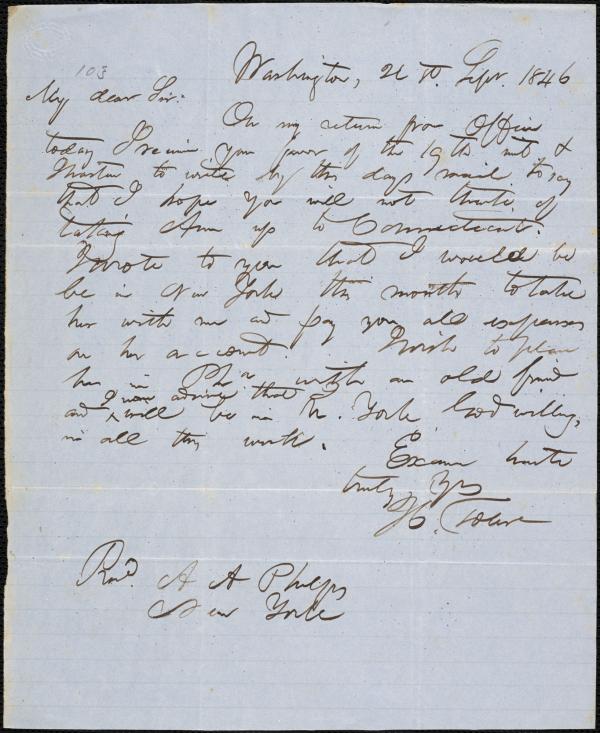 103
Washington, 21 St. Sept. 1846
My dear Sir:
On my return from Office
today I receive your favor of the 19th inst &
hasten to write by this days mail to say
that I hope you will not think of
taking Ann up to Connecticut.
I wrote to you that I would be
be in New York this month to take
her with me and pay you all expenses
on her account. I wish to place
her in Pha with an old friend
and I now advise that
will be in N. York, God willing,
in all this week.
Excuse haste
truly Yrs
Revd. A A Phelps
New York